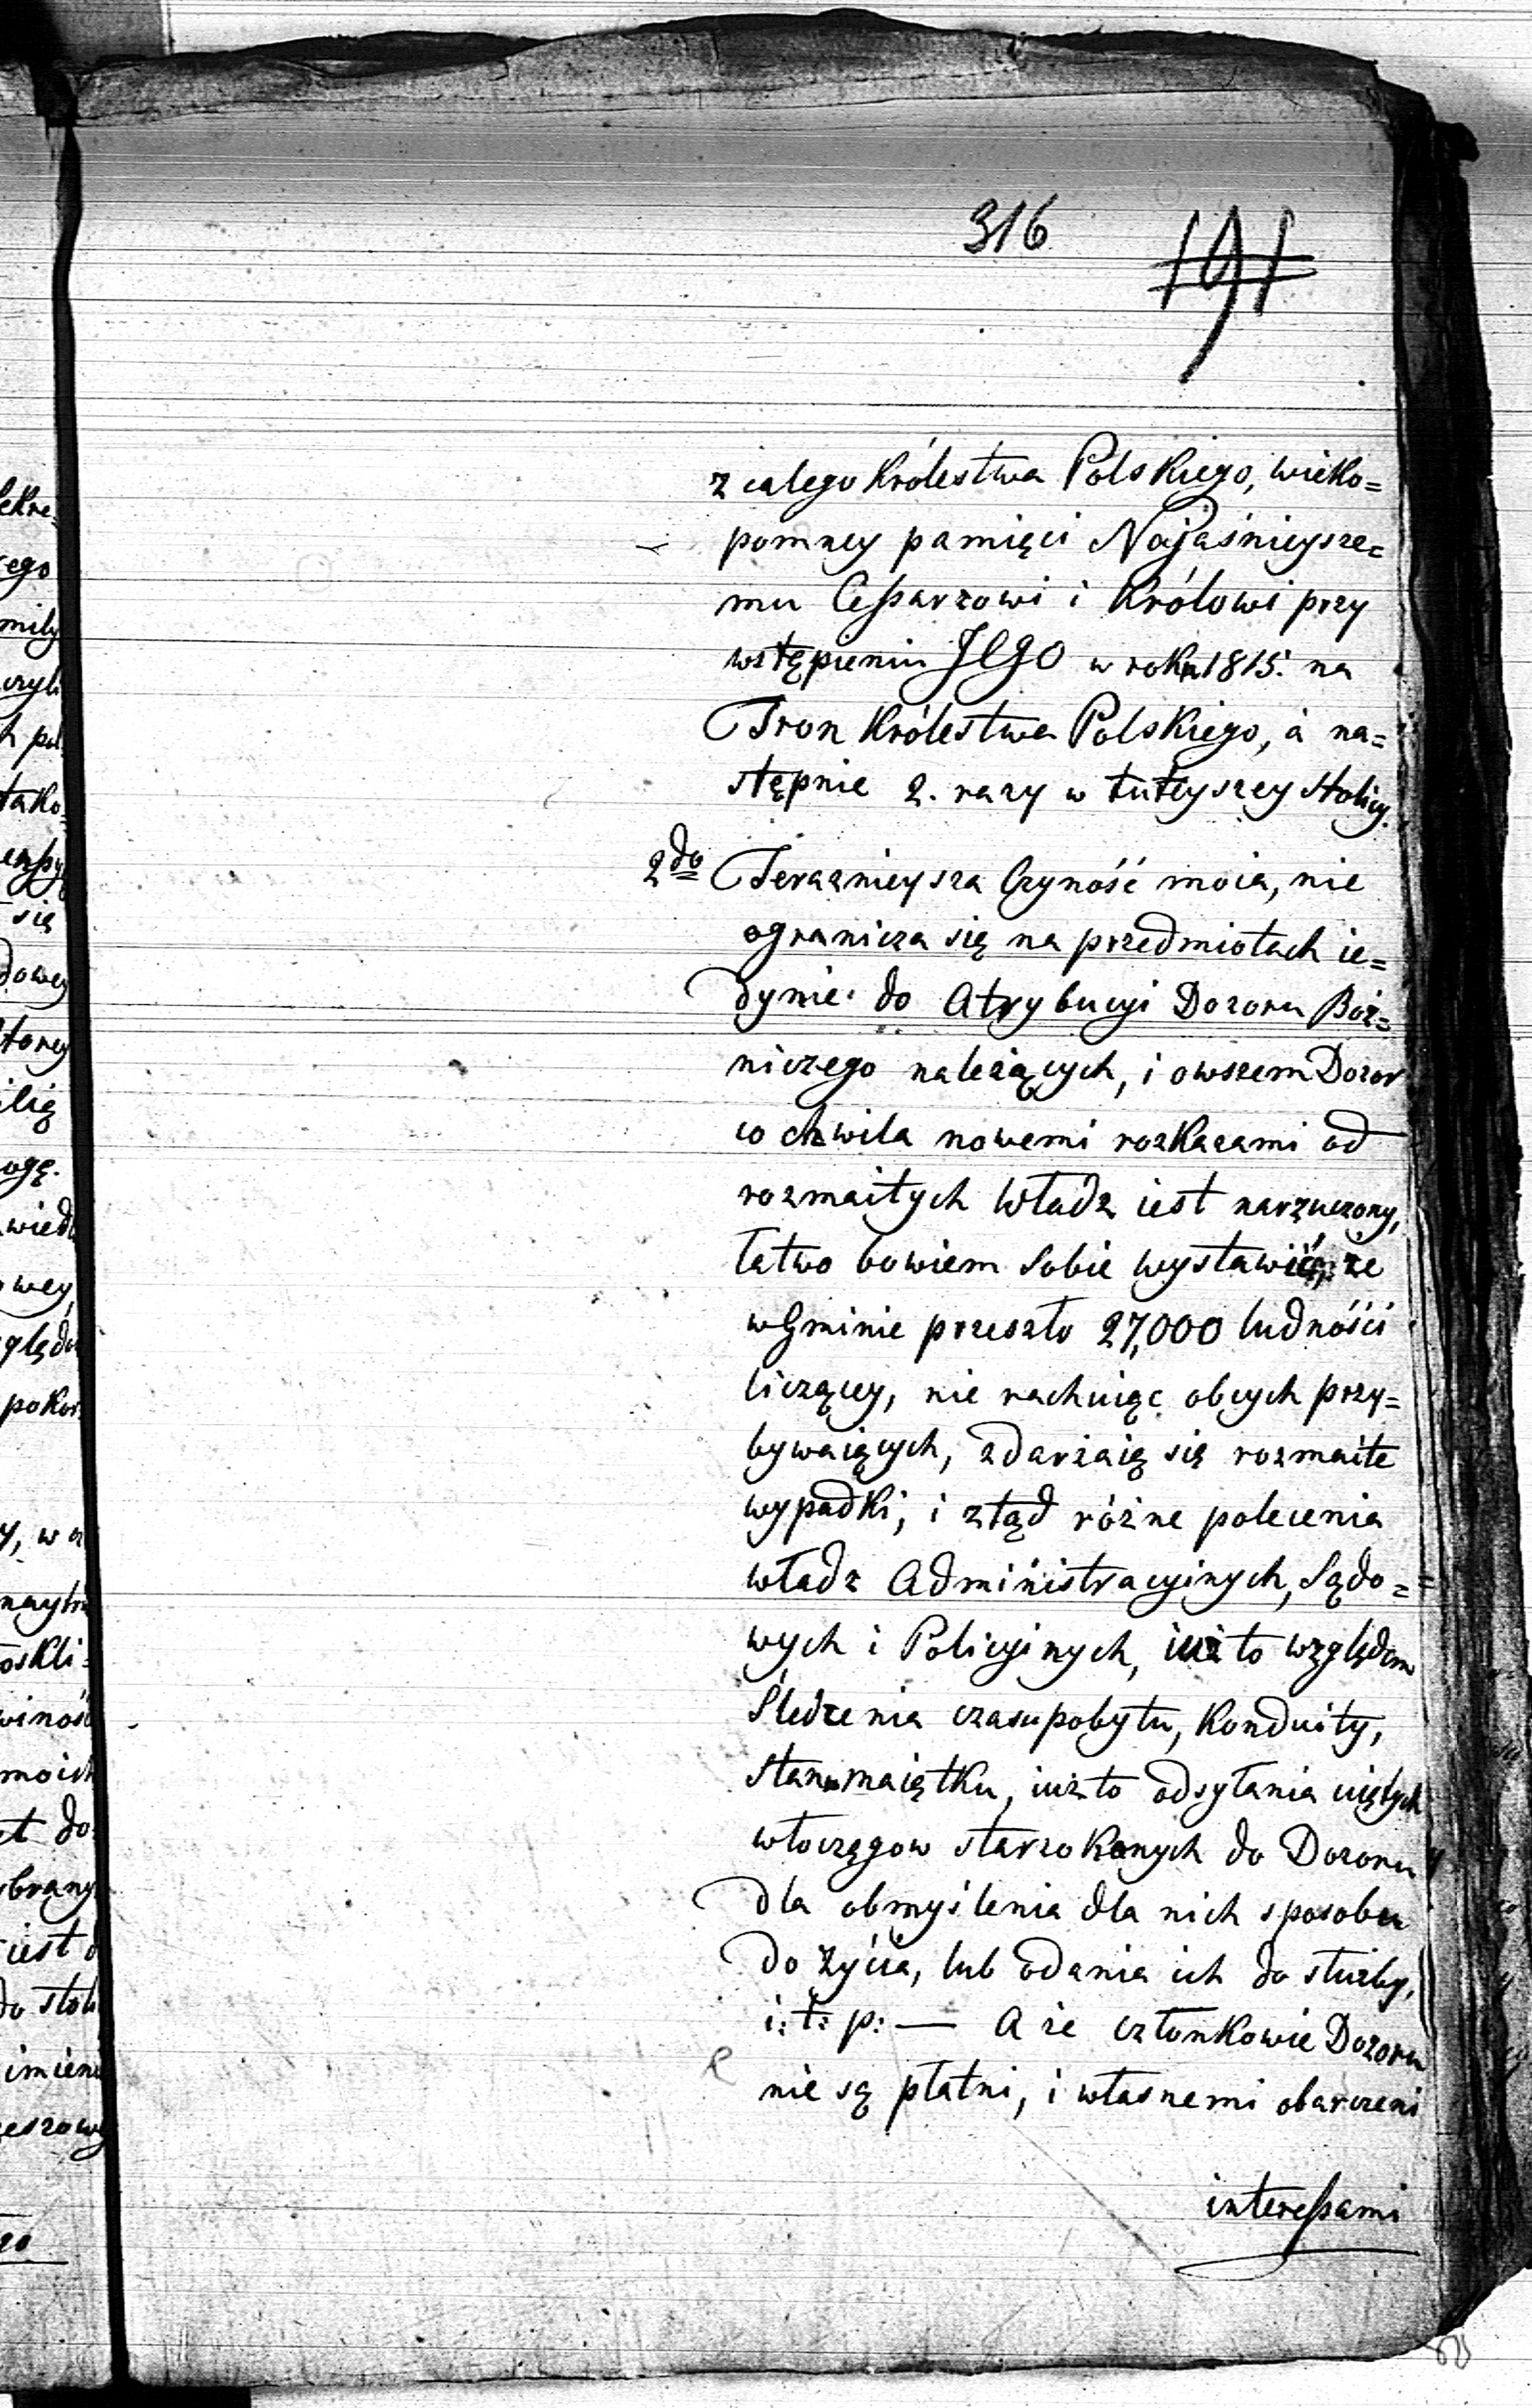 316
191
z całego Królestwa Polskiego, wieko=
pomney pamięci Najaśnieysze=
mu Cessarzowi i Królowi przy
wstępieniu JEGO w roku 1815. na
Tron Królestwa Polskiego, à na=
stępnie 2. razy w tuteyszey stolicy.
2do Teraznieysza Czyność moia, nie
ogranicza się na przedmiotach ie=
dynie do Atrybucyi Dozoru Boż=
niczego należących, i owszem Dozor
co chwila nowemi rozkazami od
rozmaitych Władz iest narzuczony,
łatwo bowiem sobie wystawić, że
w Gminie przeszło 27,000 ludności
liczącey, nie rachuiąc obcych przy=
bywaiących, zdarżaią się rozmaite
wypadki, i ztąd różne polecenia
władz Administracyinych, Sądo=
wych i Policyinych, iuż to względem
Śledzenia czasu pobytu, Konduity,
stanu maiątku, iużto odsyłania uiętych
włoczęgow starzokonych do Dozoru
dla obmyślenia dla nich sposobu
do życia, lub odania ich do służby,
i: t: p: — A że członkowie Dozoru
nie są płatni, i własnemi obarczeni
interessami